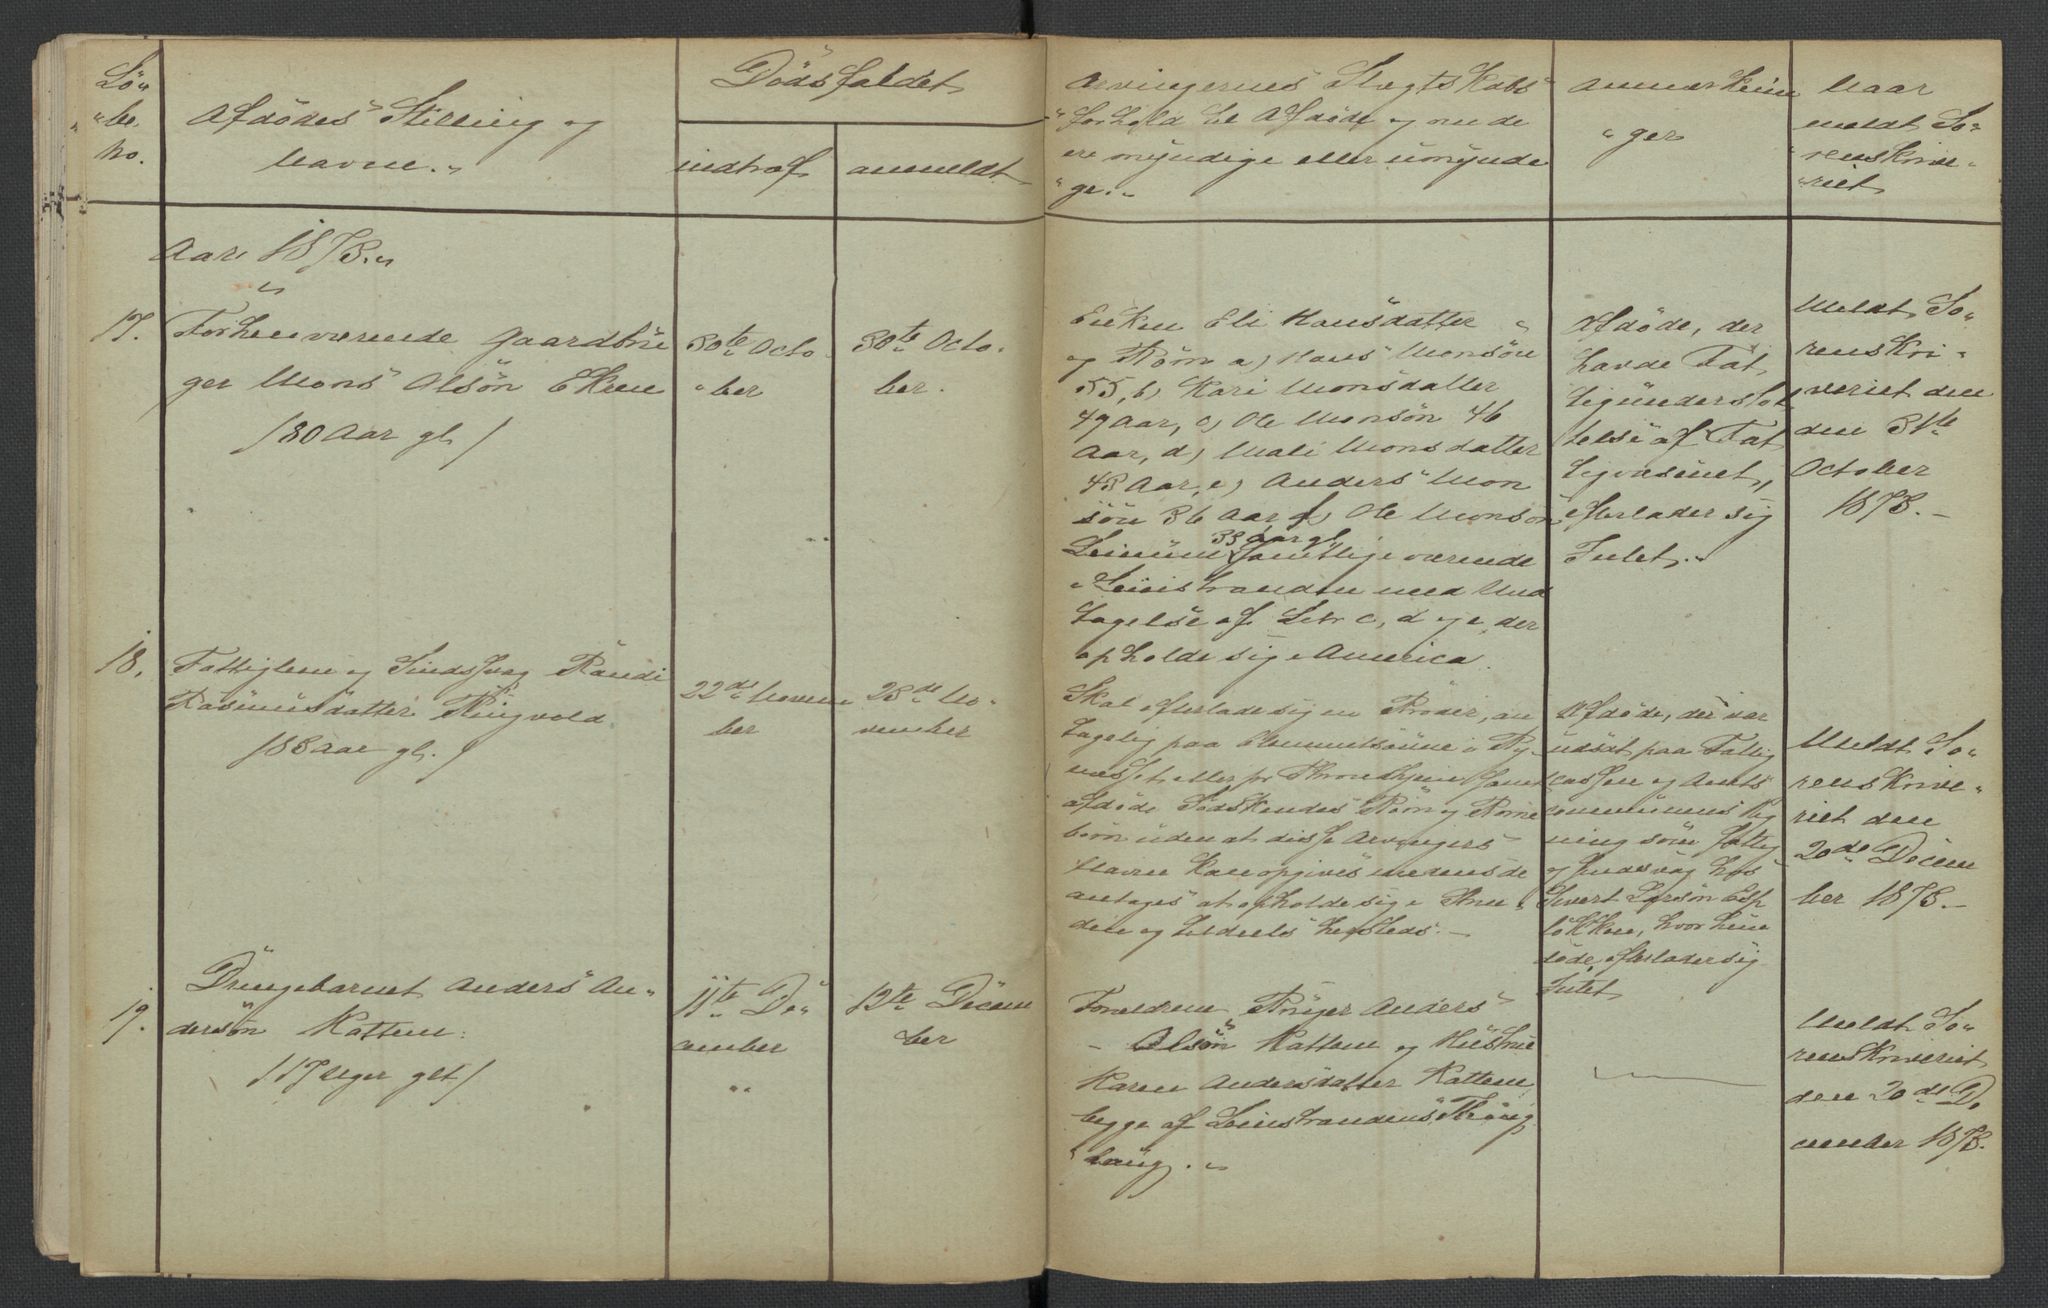 Lö"
"be.
No.
Afdödes Stilling og
Navne."
Dödsfaldet
indtraf
anmeldt
Arvingernes Slegtskabs
"forhold til Afdöde og om de
ere myndige eller umyndi
"ge."
Anmærknin
"ger
Naar
meldt So"
"renskrive"
"riet
Aar 1873."
17.
Forhenværende Gaardbru
ger Mons Olsön Ekren
/80 Aar gl/
30te Octo"
"ber
30te Octo.
ber.
Enken Eli Hansdatter
og Börn a) Hans Monsön
55, b) Kari Monsdatter
49 Aar, c) Ole Monsön 46
Aar, d) Mali Monsdatter
43 Aar, e) Anders Mon
sön 36 Aar f) Ole Monsön
33 Aar gl
Leinum samtlige værende
i Leinstranden med Und
tagelse af Litr c, d og e, der
opholde sig i America.
Afdöde, der
havde Fat
tigunderstöt
telse af Fat
tigvæsenet,
efterlader sig
Intet."
Meldt So"
renskri"
veriet den
den 31te
October
1873.-
18.
Fattiglem og Sindssvag Randi
Rasmusdatter Ringvold
/83 Aar gl./
22de Novem
ber
23de No"
vember
Skal efterlade sig en Broder, an
tagelig paa
næsset eller pr Throndhjem samt
afdöde Södskendes Börn og Börne
börn uden at disse Arvingers
Navne kan opgives medens de
antages at opholde sig i Thron"
diem og tildeels hersteds.-
Afdöde, der var
udsat paa Fattig
cassen og Amts
communens Reg
ning som fattig
og sindsvag hos
Sivert Larsön Esp
lökken, hvor hun
döde, efterlader sig
Intet
Meldt So"
renskrive"
riet den
20de Decem
ber 1873.-
19.
Drengebarnet Anders An"
dersön Kattem.
/17 Uger glt/
11te De"
cember
12te Decem
ber
Foreldrene Bruger Anders
- Olsön Kattem og Hustrue
Karen Andersdatter Kattem
begge af Leinstrandens Thing
"laug."
Meldt So"
renskriveriet
den 20de De
cember 1873.